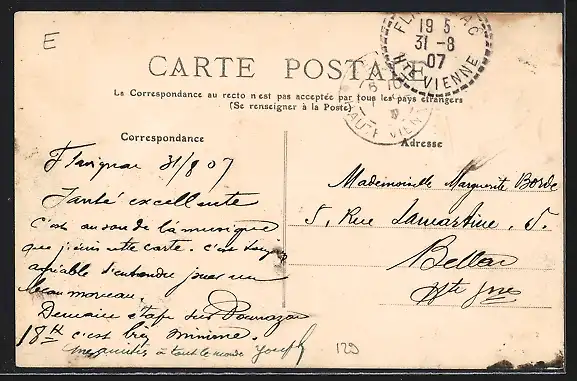 E
CARTE POSTALE
La Correspondance au recto n'est pas acceptée par tous les pays étrangers
(Se renseigner à la Poste)
FLAVIGNAC
19 5
31 - 8
07
Hte VIENNE
HAUTE VIENNE
Correspondance
Adresse
Flavignac 31/8 07
Santé excellente
C'est au son de la musique
que j'écris cette carte. c'est
agréable d'entendre jouer un
beau morceau.
Demain étape sur
18 K c'est bien minime.
mes amitiés à tout le monde Joseph
Mademoiselle Marguerite Borde
5, Rue Lamartine, 5.
Bellac
Hte Vne
129